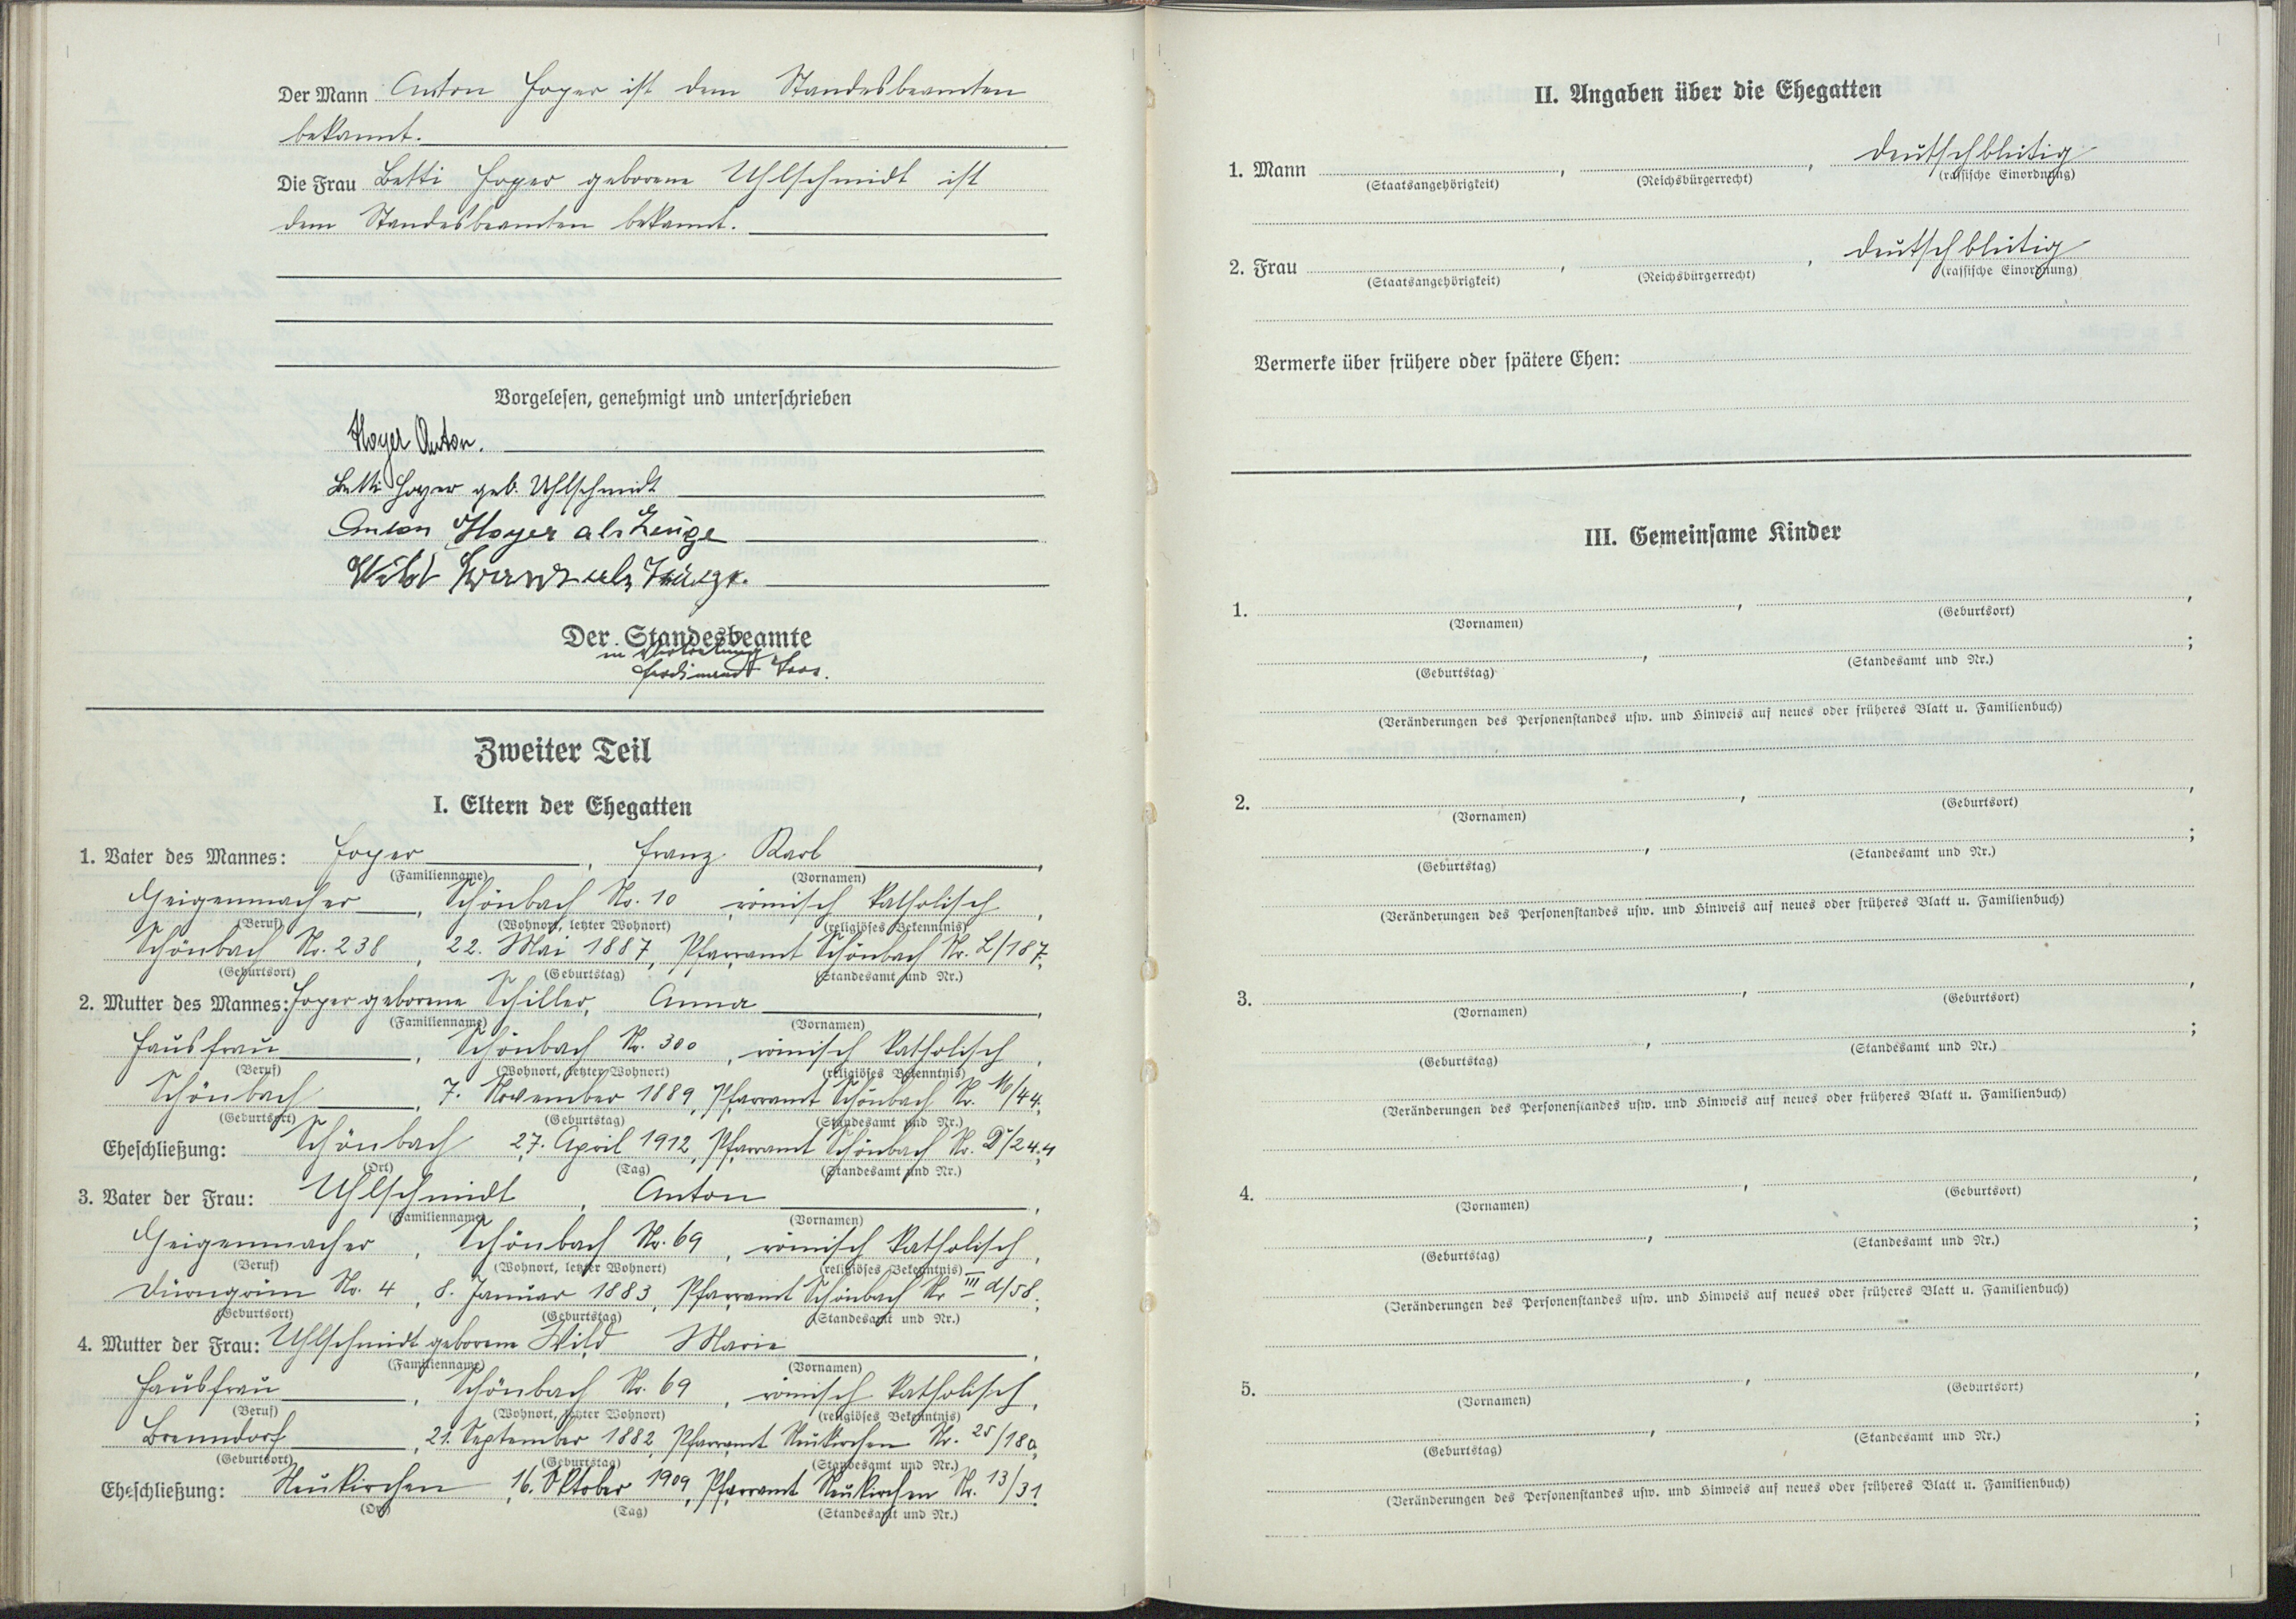 Der Mann Anton Hoyer ist dem Standesbeamten
bekannt.
Die Frau Betti Hoyer geborene Uhlschmidt ist
dem Standesbeamten bekannt.
Vorgelesen, genehmigt und unterschrieben
Hoyer Anton.
Betti Hoyer geb. Uhlschmidt
Anton Hoyer als Zeuge
Wild Franz als Zeuge.
Der Standesbeamte
in Vertretung
Ferdinand
Zweiter Teil
I. Eltern der Ehegatten
1. Vater des Mannes: Hoyer, Franz Karl,
(Familienname) (Vornamen)
Geigenmacher, Schönbach No. 10 römisch katholisch,
(Beruf) (Wohnort, letzter Wohnort) (religiöses Bekenntnis)
Schönbach No. 238, 22. Mai 1887, Pfarramt Schönbach Nr. L/187;
(Geburtsort) (Geburtstag) (Standesamt und Nr.)
2. Mutter des Mannes: Hoyer geborene Schiller, Anna,
(Familienname) (Vornamen)
Hausfrau, Schönbach No. 300, römisch katholisch,
(Beruf) (Wohnort, letzter Wohnort) (religiöses Bekenntnis)
Schönbach, 7. November 1889, Pfarramt Schönbach Nr. M/44;
(Geburtsort) (Geburtstag) (Standesamt und Nr.)
Eheschließung: Schönbach, 27. April 1912, Pfarramt Schönbach Nr. D/244
(Ort) (Tag) (Standesamt und Nr.)
3. Vater der Frau: Uhlschmidt, Anton,
(Familienname) (Vornamen)
Geigenmacher, Schönbach No. 69, römisch katholisch,
(Beruf) (Wohnort, letzter Wohnort) (religiöses Bekenntnis)
Dürngrün No. 4, 8. Januar 1883, Pfarramt Schönbach Nr III d/58;
(Geburtsort) (Geburtstag) (Standesamt und Nr.)
4. Mutter der Frau: Uhlschmidt geborene Wild, Marie,
(Familienname) (Vornamen)
Hausfrau, Schönbach No. 69, römisch katholisch,
(Beruf) (Wohnort, letzter Wohnort) (religiöses Bekenntnis)
Brenndorf, 21. September 1882, Pfarramt Neukirchen Nr. 25/180;
(Geburtsort) (Geburtstag) (Standesamt und Nr.)
Eheschließung: Neukirchen, 16. Oktober 1909, Pfarramt Neukirchen Nr. 13/31.
(Ort) (Tag) (Standesamt und Nr.)
II. Angaben über die Ehegatten
1. Mann , , deutschblütig
(Staatsangehörigkeit) (Reichsbürgerrecht) (rassische Einordnung)
2. Frau , , deutschblütig
(Staatsangehörigkeit) (Reichsbürgerrecht) (rassische Einordnung)
Vermerke über frühere oder spätere Ehen:
III. Gemeinsame Kinder
1. , ,
(Vornamen) (Geburtsort)
, ;
(Geburtstag) (Standesamt und Nr.)
(Veränderungen des Personenstandes usw. und Hinweis auf neues oder früheres Blatt u. Familienbuch)
2. , ,
(Vornamen) (Geburtsort)
, ;
(Geburtstag) (Standesamt und Nr.)
(Veränderungen des Personenstandes usw. und Hinweis auf neues oder früheres Blatt u. Familienbuch)
3. , ,
(Vornamen) (Geburtsort)
, ;
(Geburtstag) (Standesamt und Nr.)
(Veränderungen des Personenstandes usw. und Hinweis auf neues oder früheres Blatt u. Familienbuch)
4. , ,
(Vornamen) (Geburtsort)
, ;
(Geburtstag) (Standesamt und Nr.)
(Veränderungen des Personenstandes usw. und Hinweis auf neues oder früheres Blatt u. Familienbuch)
5. , ,
(Vornamen) (Geburtsort)
, ;
(Geburtstag) (Standesamt und Nr.)
(Veränderungen des Personenstandes usw. und Hinweis auf neues oder früheres Blatt u. Familienbuch)